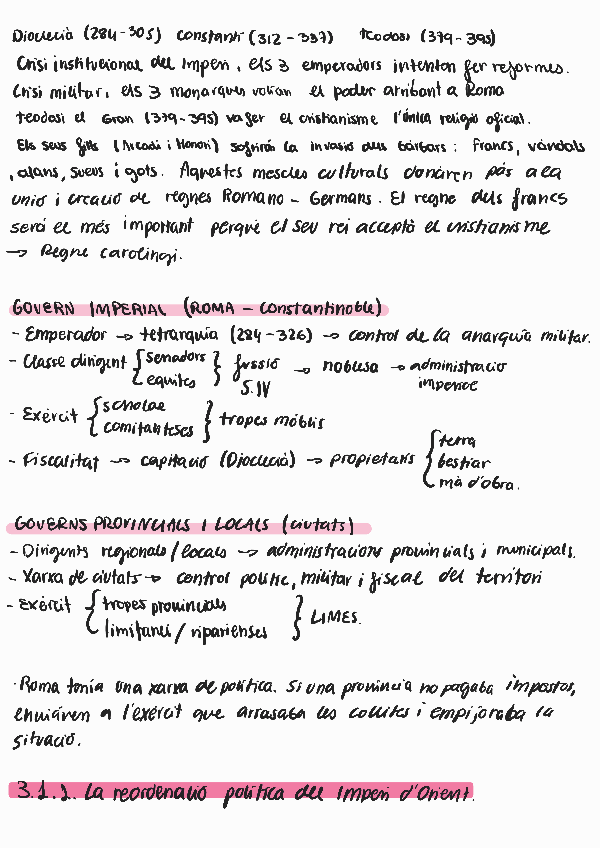 Dioclecià (284-305) Constantí (312-337) Teodosi (379-395)
Crisi institucional del Imperi, els 3 emperadors intenten fer reformes.
Crisi militar, els 3 monarques volian el poder arribant a Roma
Teodosi el Gran (379-395) va fer el cristianisme l'única religió oficial.
Els seus fills (Arcadi i Honori) sofriran la invasió dels bàrbars: francs, vàndals
, alans, sueus i gots. Aquestes mescles culturals donaren pas a la
unió i creació de regnes Romano-Germans. El regne dels francs
serà el més important perquè el seu rei acceptà el cristianisme
→ Regne carolingi.
GOVERN IMPERIAL (ROMA - Constantinoble)
- Emperador → tetrarquía (284-326) → control de la anarquía militar.
- Classe dirigent { senadors equites } fussió S.IV → noblesa → administració imperial
- Exèrcit { scholae comitanteses } tropes mòbils
- Fiscalitat → capitació (Dioclecià) → propietaris { terra bestiar mà d'obra.
GOVERNS PROVINCIALS I LOCALS (ciutats)
- Dirigents regionals/locals → administracions provincials i municipals.
- Xarxa de ciutats → control polític, militar i fiscal del territori
- Exèrcit { tropes provincials limitanei / riparienses } LIMES.
· Roma tenía una xarxa de política. Si una provincia no pagaba impostos,
enviaven a l'exèrcit que arrasaba les collites i empijoraba la
situació.
3.1.1. La reordenació política del Imperi d'Orient.